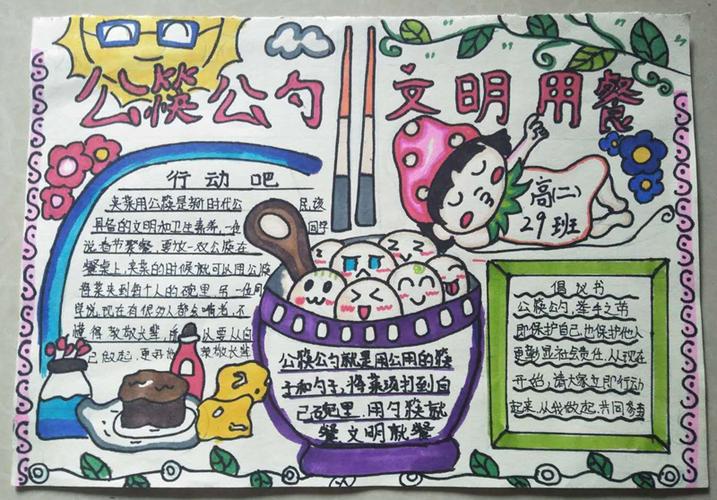 公筷公勺 文明用餐
行动吧
夹菜用公筷是新时代公民该
具备的文明和卫生素养,一位同学
说春节聚餐,更放一双公筷在
餐桌上,夹菜的时候就可以用公筷
将菜夹到每个人的碗里,另一位同
学说,现在有很多人都会唯老,不
懂得敬敬长辈,所 以要从自
己做起,更好地 敬长辈
高(二)
29班
公筷公勺就是用公用的筷
子和勺子,将菜汤打到自
己碗里,用勺筷就
餐文明就餐
倡议书
公筷公勺,举手之劳
即保护自己,也保护他人
更彰显社会责任,从现在
开始,请大家立即行动
起来,从我做起,共同